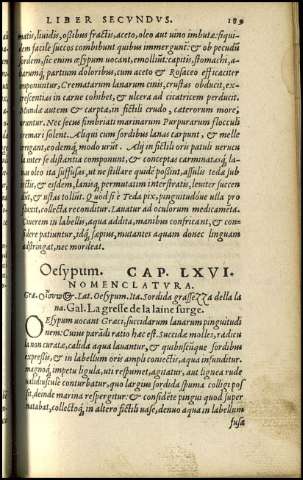 LIBER SECVNDVS. 189
matis, liuidis, oßibus fractis, aceto, oleo aut uino imbutæ: siqui-
dem facile succos combibunt quibus immergunt: & ob pecudū
sordem, sic enim œsypum uocant, emolliūt. capitis, stomachi, a-
partium doloribus, cum aceto & Rosaceo efficaciter
imponuntur. Crematarum lanarum cinis, crustas obducit, ex-
crescentias in carne cohibet, & ulcera ad cicatricem perducit.
Munda autem & carpta, in fictili crudo, caterorum more,
Nec secus fimbriati marinarum Purpurarum flocculi
cremari solent. Aliqui cum sordibus lanas carpunt, & melle
rigant, eodemq́ modo urūt. Alij in fictili oris patuli uerucu
la inter se distantia componunt, & conceptas carminatasq́, la-
nas oleo ita suffusas, ut ne stillare quidē poßint, assulis teda sub
& eisdem, lanisq́ permutatim interstratis, leuiter succen
dūt, & ustas tollūt. Quod si è Teda pix, pinguitudóue ulla pro
fluxerit, collecta reconditur. Lauatur ad oculorum medicamēta.
Cinerem in labellū, aqua addita, manibus confricant, & con-
sidere patiuntur, idq́, sæpius, mutantes aquam donec linguam
adstringat, nec mordeat.
Oesypum. CAP. LXVI.
NOMENCLATVRA.
Græ. Lat. Oesypum. Ita. Sordida grassezza della la
na. Gal. La gresse de la laine surge.
OEsypum uocant Græci, succidarum lanarum pinguitudi
nem: Cuius parādi ratio hæc est. Succidæ molles, radicula
non curatæ, calida aqua lauantur, & quibuscūque sordibus
expreßis, & in labellum oris ampli coniectis, aqua infunditur.
magnoq́ impetu ligula, uti respumet, agitatur, aut lignea rude
ualidiusculè conturbatur, quo largius sordida spuma colligi pos
sit, deinde marina respergitur. & considēte pingui quod super
natabat, collectoq́, in altero fictili uase, denuo aqua in labellum
fusa